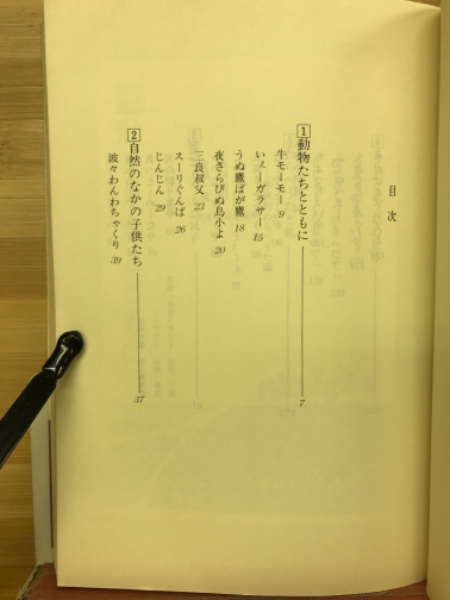 目次
1 動物たちとともに 7
牛モーモー 9
いぇーガラサー 15
うぬ鷹ばが鷹 18
夜さらびぬ鳥小よ 20
三良叔父 23
スーリぐんば 26
じんじん 29
2 自然のなかの子供たち 37
波々わんわちゃくり 39